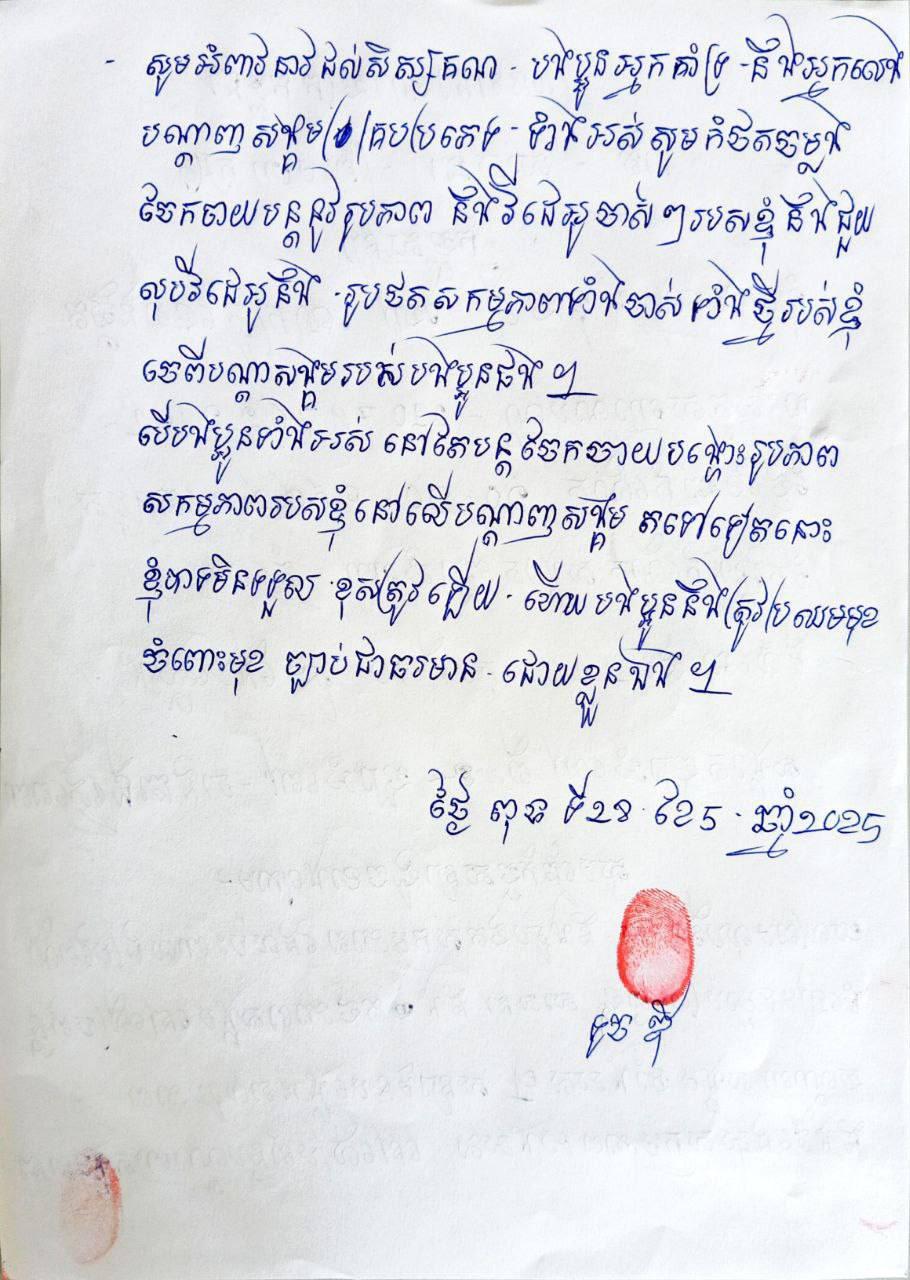 - សូមអំពាវនាវដល់សិស្សគណ - បងប្អូនអ្នកគាំទ្រ - និងអ្នកលេង
បណ្តាញសង្គមគ្រប់ប្រភេទ - ទាំងអស់ សូមកំថតចម្លង
ចែកចាយបន្តនូវរូបភាព និងវីដេអូចាស់ៗរបសខ្ញុំ និងជួយ
លុបវីដេអូនិង - រូបថតសកម្មភាពទាំងចាស់ ទាំងថ្មីរបស់ខ្ញុំ
ចេពីបណ្តាសង្គមរបស់បងប្អូនផង ។
បើបងប្អូនទាំងអស់ នៅតែបន្តចែកចាយបង្ហោះរូបភាព
សកម្មភាពរបសខ្ញុំនៅលើបណ្តាញសង្គម តទៅទៀតនោះ
ខ្ញុំបាទមិនទទួល ខុសត្រូវឡើយ - ហើយបងប្អូននឹងត្រូវប្រឈមមុខ
ចំពោះមុខ ច្បាប់ជាធរមាន - ដោយខ្លួនឯង ។
ថ្ងៃ ពុធ ទី28 - ខែ5 - ឆ្នាំ2025